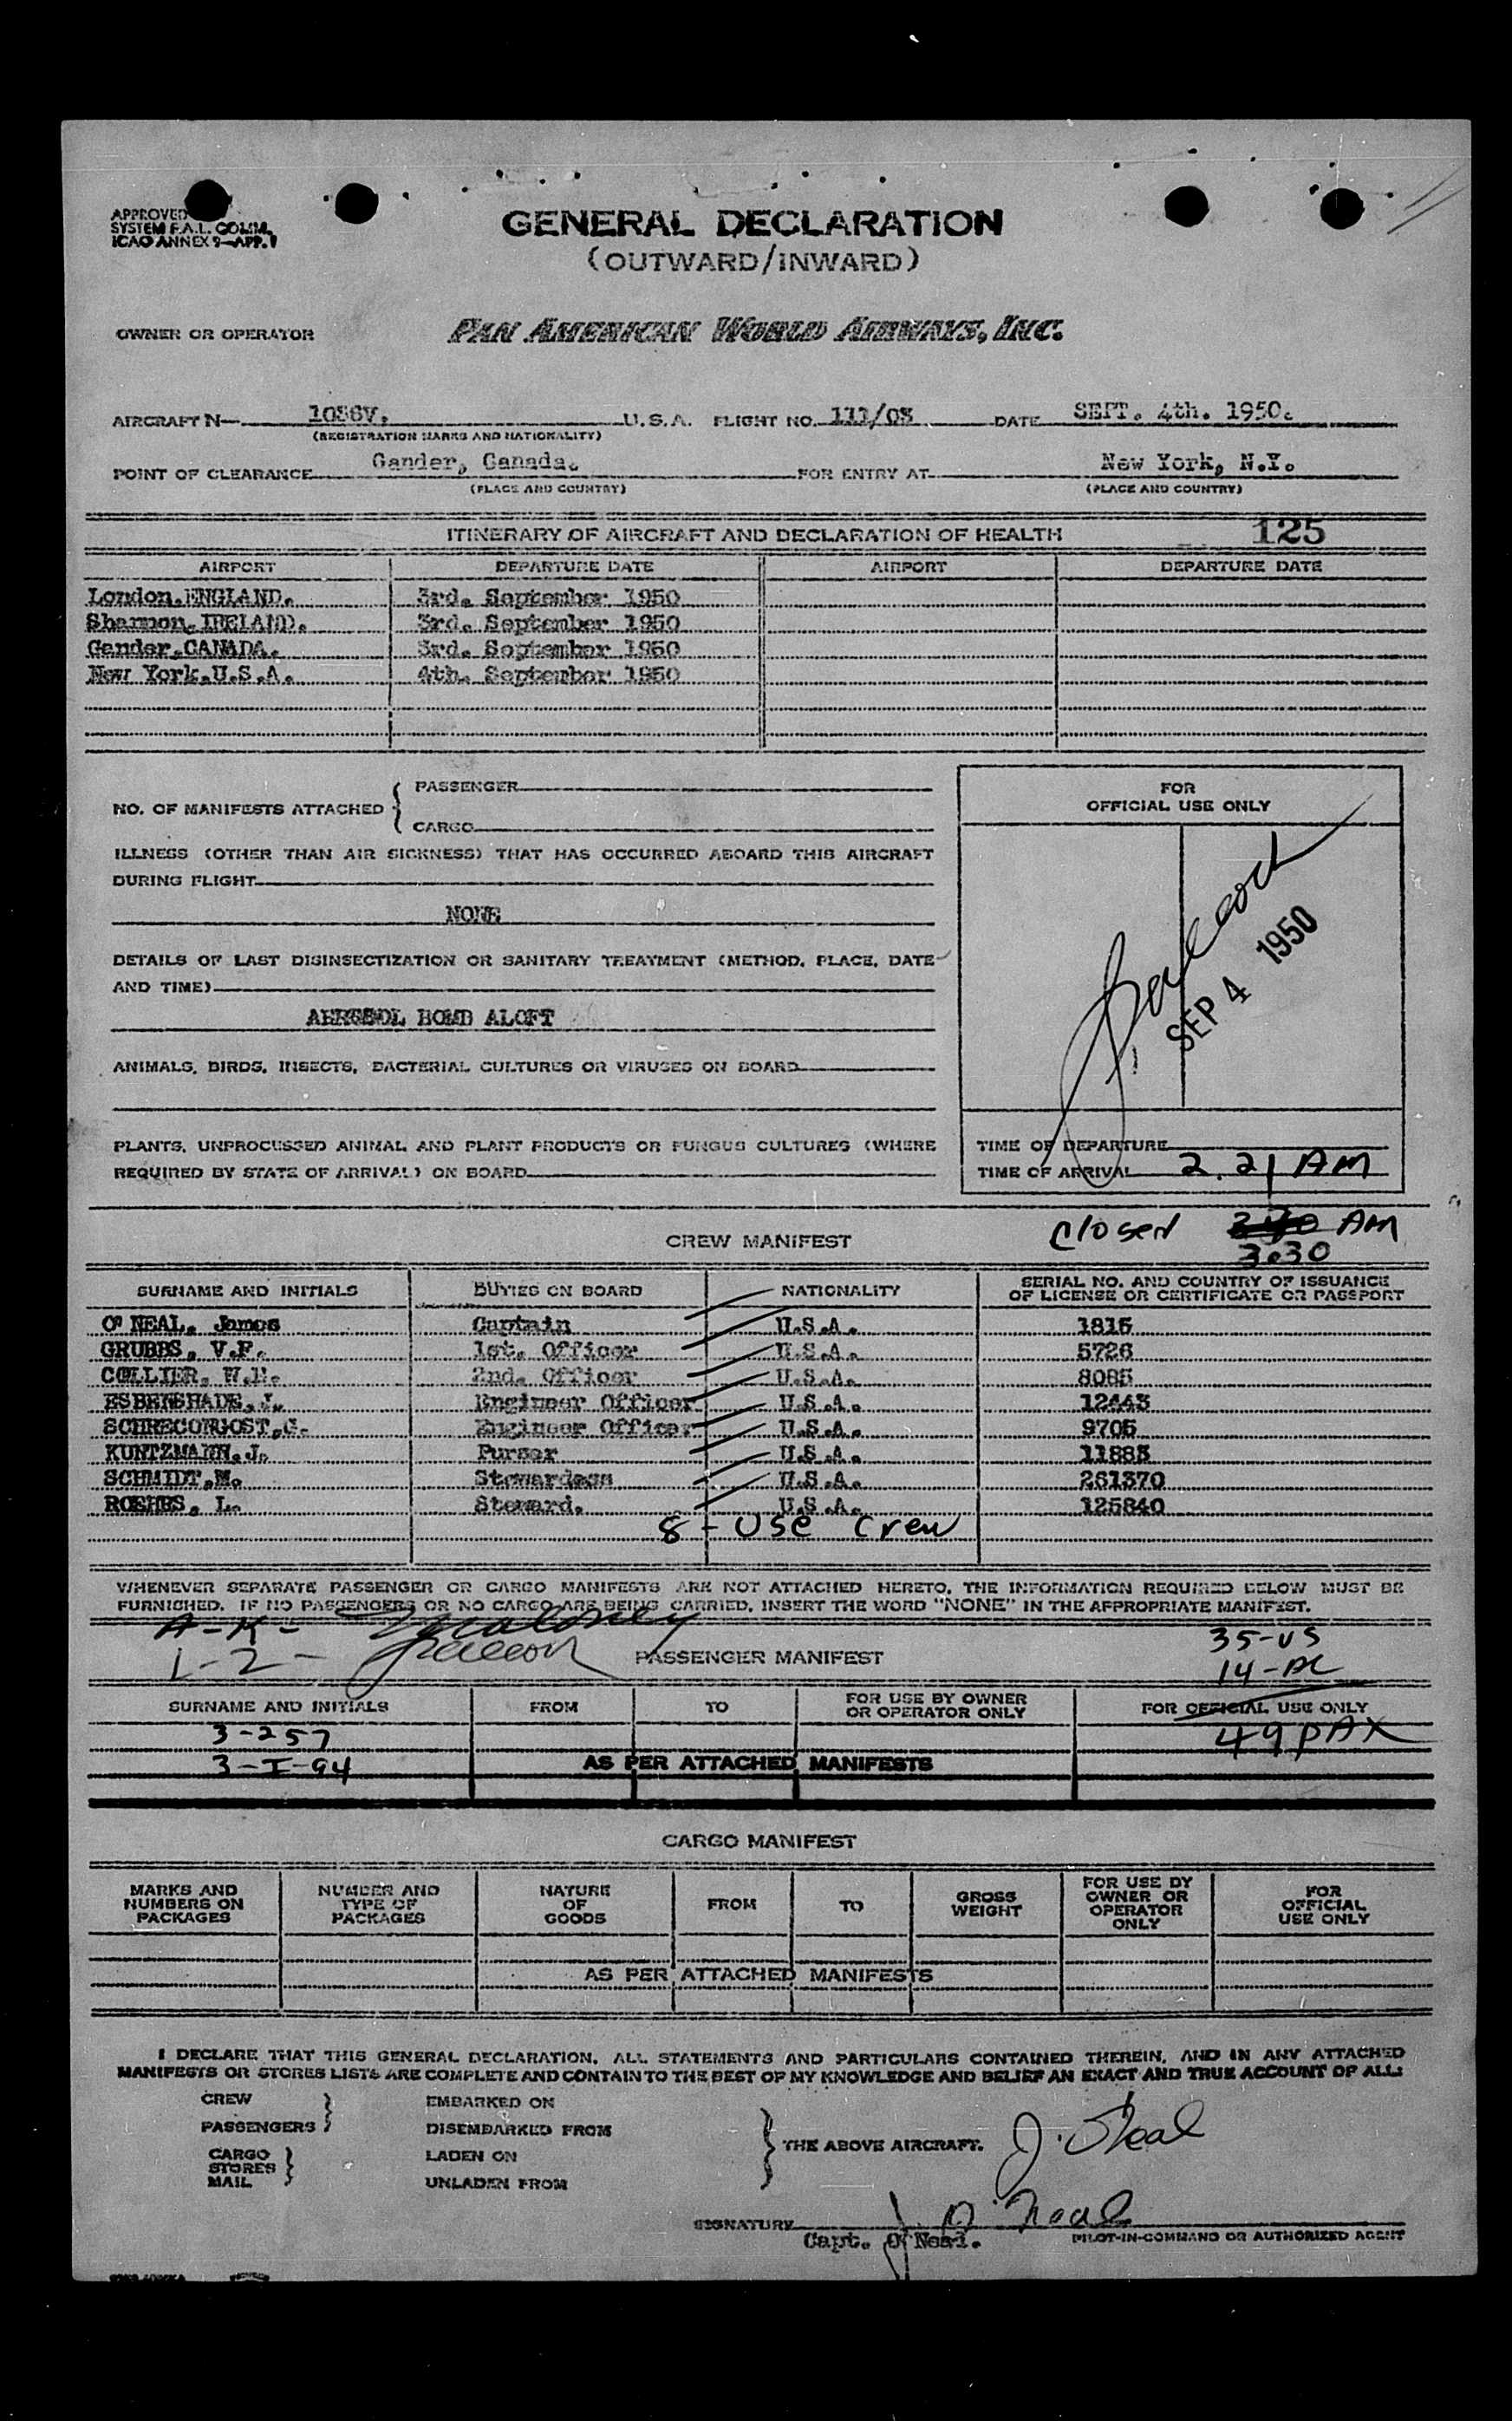 APPROVED
SYSTEM F.A.L. COMM.
ICAO ANNEX 9—APP. 1
GENERAL DECLARATION
(OUTWARD/INWARD)
OWNER OR OPERATOR PAN AMERICAN WORLD AIRWAYS, INC.
AIRCRAFT N— 1036V. U.S.A. FLIGHT NO. 111/03 DATE SEPT. 4th. 1950.
(REGISTRATION MARKS AND NATIONALITY)
POINT OF CLEARANCE Gander, Canada. FOR ENTRY AT New York, N.Y.
(PLACE AND COUNTRY) (PLACE AND COUNTRY)
ITINERARY OF AIRCRAFT AND DECLARATION OF HEALTH 125
AIRPORT DEPARTURE DATE AIRPORT DEPARTURE DATE
London.ENGLAND. 3rd. September 1950
Shannon, IRELAND. 3rd. September 1950
Gander,CANADA. 3rd. September 1950
New York,U.S.A. 4th. September 1950
NO. OF MANIFESTS ATTACHED { PASSENGER
CARGO
FOR
OFFICIAL USE ONLY
ILLNESS (OTHER THAN AIR SICKNESS) THAT HAS OCCURRED ABOARD THIS AIRCRAFT
DURING FLIGHT
NONE
SEP 4 1950
DETAILS OF LAST DISINSECTIZATION OR SANITARY TREATMENT (METHOD, PLACE, DATE
AND TIME)
AEROSOL BOMB ALOFT
ANIMALS, BIRDS, INSECTS, BACTERIAL CULTURES OR VIRUSES ON BOARD
PLANTS, UNPROCESSED ANIMAL AND PLANT PRODUCTS OR FUNGUS CULTURES (WHERE
REQUIRED BY STATE OF ARRIVAL) ON BOARD
TIME OF DEPARTURE
TIME OF ARRIVAL 2.21 AM
closed AM
3.30
CREW MANIFEST
SURNAME AND INITIALS DUTIES ON BOARD NATIONALITY SERIAL NO. AND COUNTRY OF ISSUANCE OF LICENSE OR CERTIFICATE OR PASSPORT
O'NEAL, James Captain U.S.A. 1815
GRUBBS, V.F. 1st. Officer U.S.A. 5726
COLLIER, W. 2nd. Officer U.S.A. 8085
ESBENSHADE,J. Engineer Officer U.S.A. 12443
SCHRECONGOST,G. Engineer Officer U.S.A. 9705
KUNTZMANN,J. Purser U.S.A. 11883
SCHMIDT,M. Stewardess U.S.A. 261370
ROEHRS, L. Steward. U.S.A. 125840
8 - USC Crew
WHENEVER SEPARATE PASSENGER OR CARGO MANIFESTS ARE NOT ATTACHED HERETO, THE INFORMATION REQUIRED BELOW MUST BE
FURNISHED. IF NO PASSENGERS OR NO CARGO ARE BEING CARRIED, INSERT THE WORD "NONE" IN THE APPROPRIATE MANIFEST.
A-K- Maloney
35-US
L-Z-
14-AL
PASSENGER MANIFEST
SURNAME AND INITIALS FROM TO FOR USE BY OWNER OR OPERATOR ONLY FOR OFFICIAL USE ONLY
3-257 49 PAX
3-I-94 AS PER ATTACHED MANIFESTS
CARGO MANIFEST
MARKS AND NUMBERS ON PACKAGES NUMBER AND TYPE OF PACKAGES NATURE OF GOODS FROM TO GROSS WEIGHT FOR USE BY OWNER OR OPERATOR ONLY FOR OFFICIAL USE ONLY
AS PER ATTACHED MANIFESTS
I DECLARE THAT THIS GENERAL DECLARATION, ALL STATEMENTS AND PARTICULARS CONTAINED THEREIN, AND IN ANY ATTACHED
MANIFESTS OR STORES LISTS ARE COMPLETE AND CONTAIN TO THE BEST OF MY KNOWLEDGE AND BELIEF AN EXACT AND TRUE ACCOUNT OF ALL:
CREW EMBARKED ON
PASSENGERS DISEMBARKED FROM
CARGO LADEN ON
STORES
MAIL UNLADEN FROM
THE ABOVE AIRCRAFT.
J. O'Neal
SIGNATURE J. O'Neal
Capt. O'Neal. PILOT-IN-COMMAND OR AUTHORIZED AGENT